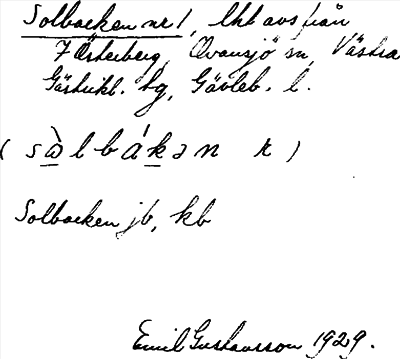 Solbacken nr 1, lht avs från
7 Österberg, Ovansjö sn, Västra
Gästrikl. tg, Gävleb. l.
(sàlbákən r)
Solbacken jb, kb
Emil Gustavsson 1929.